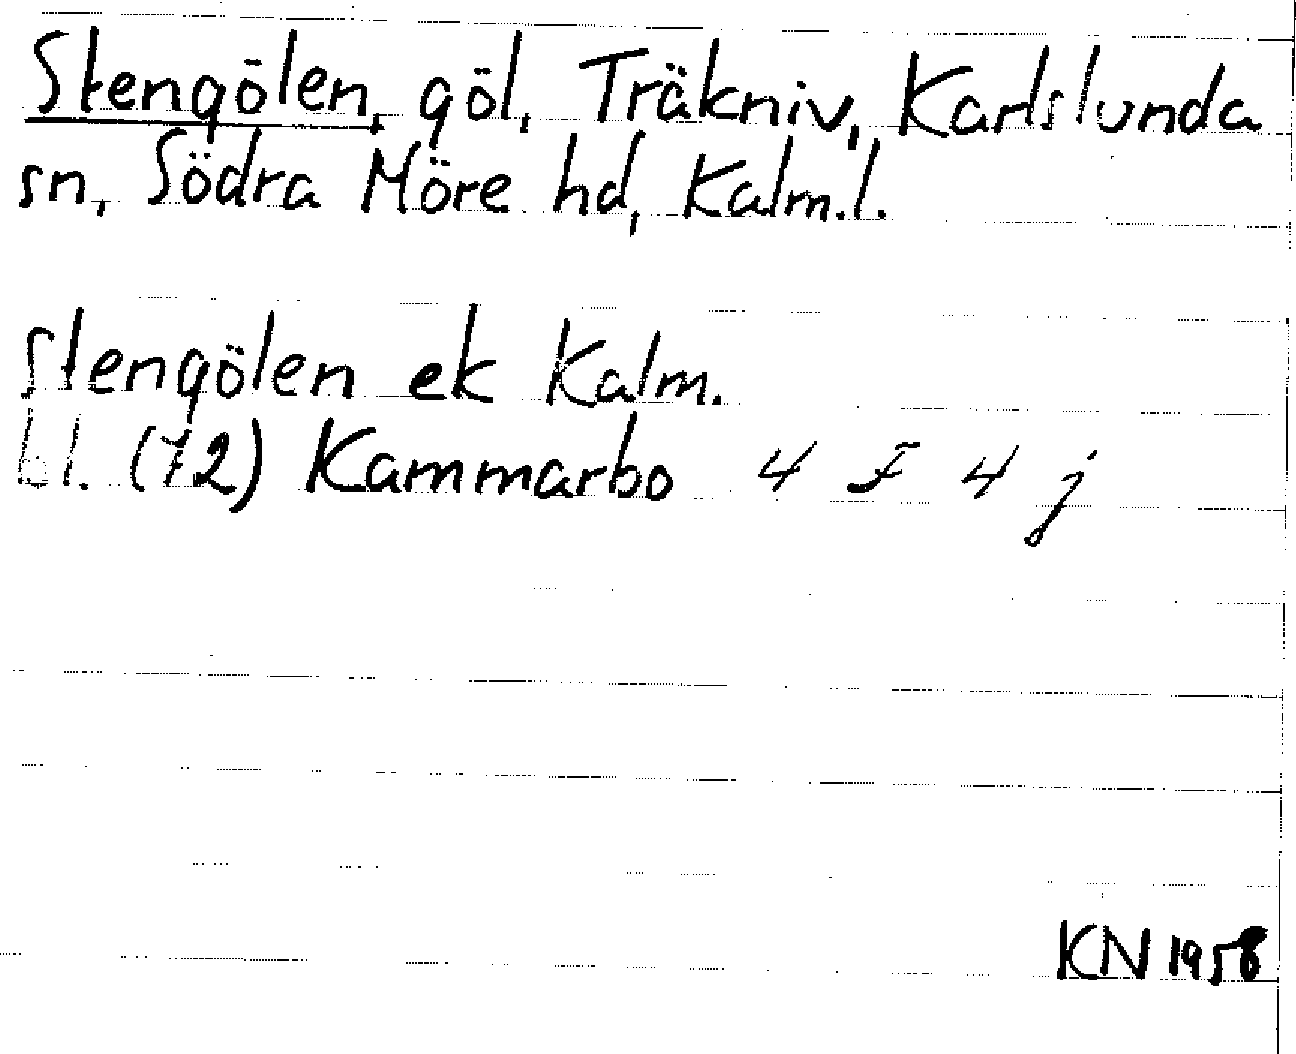 Stengölen, göl, Träkniv, Karlslunda
sn, Södra Möre hd, Kalm.l.
Stengölen ek Kalm.
bl. (72) Kammarbo 4 F 4 j
KN 1958